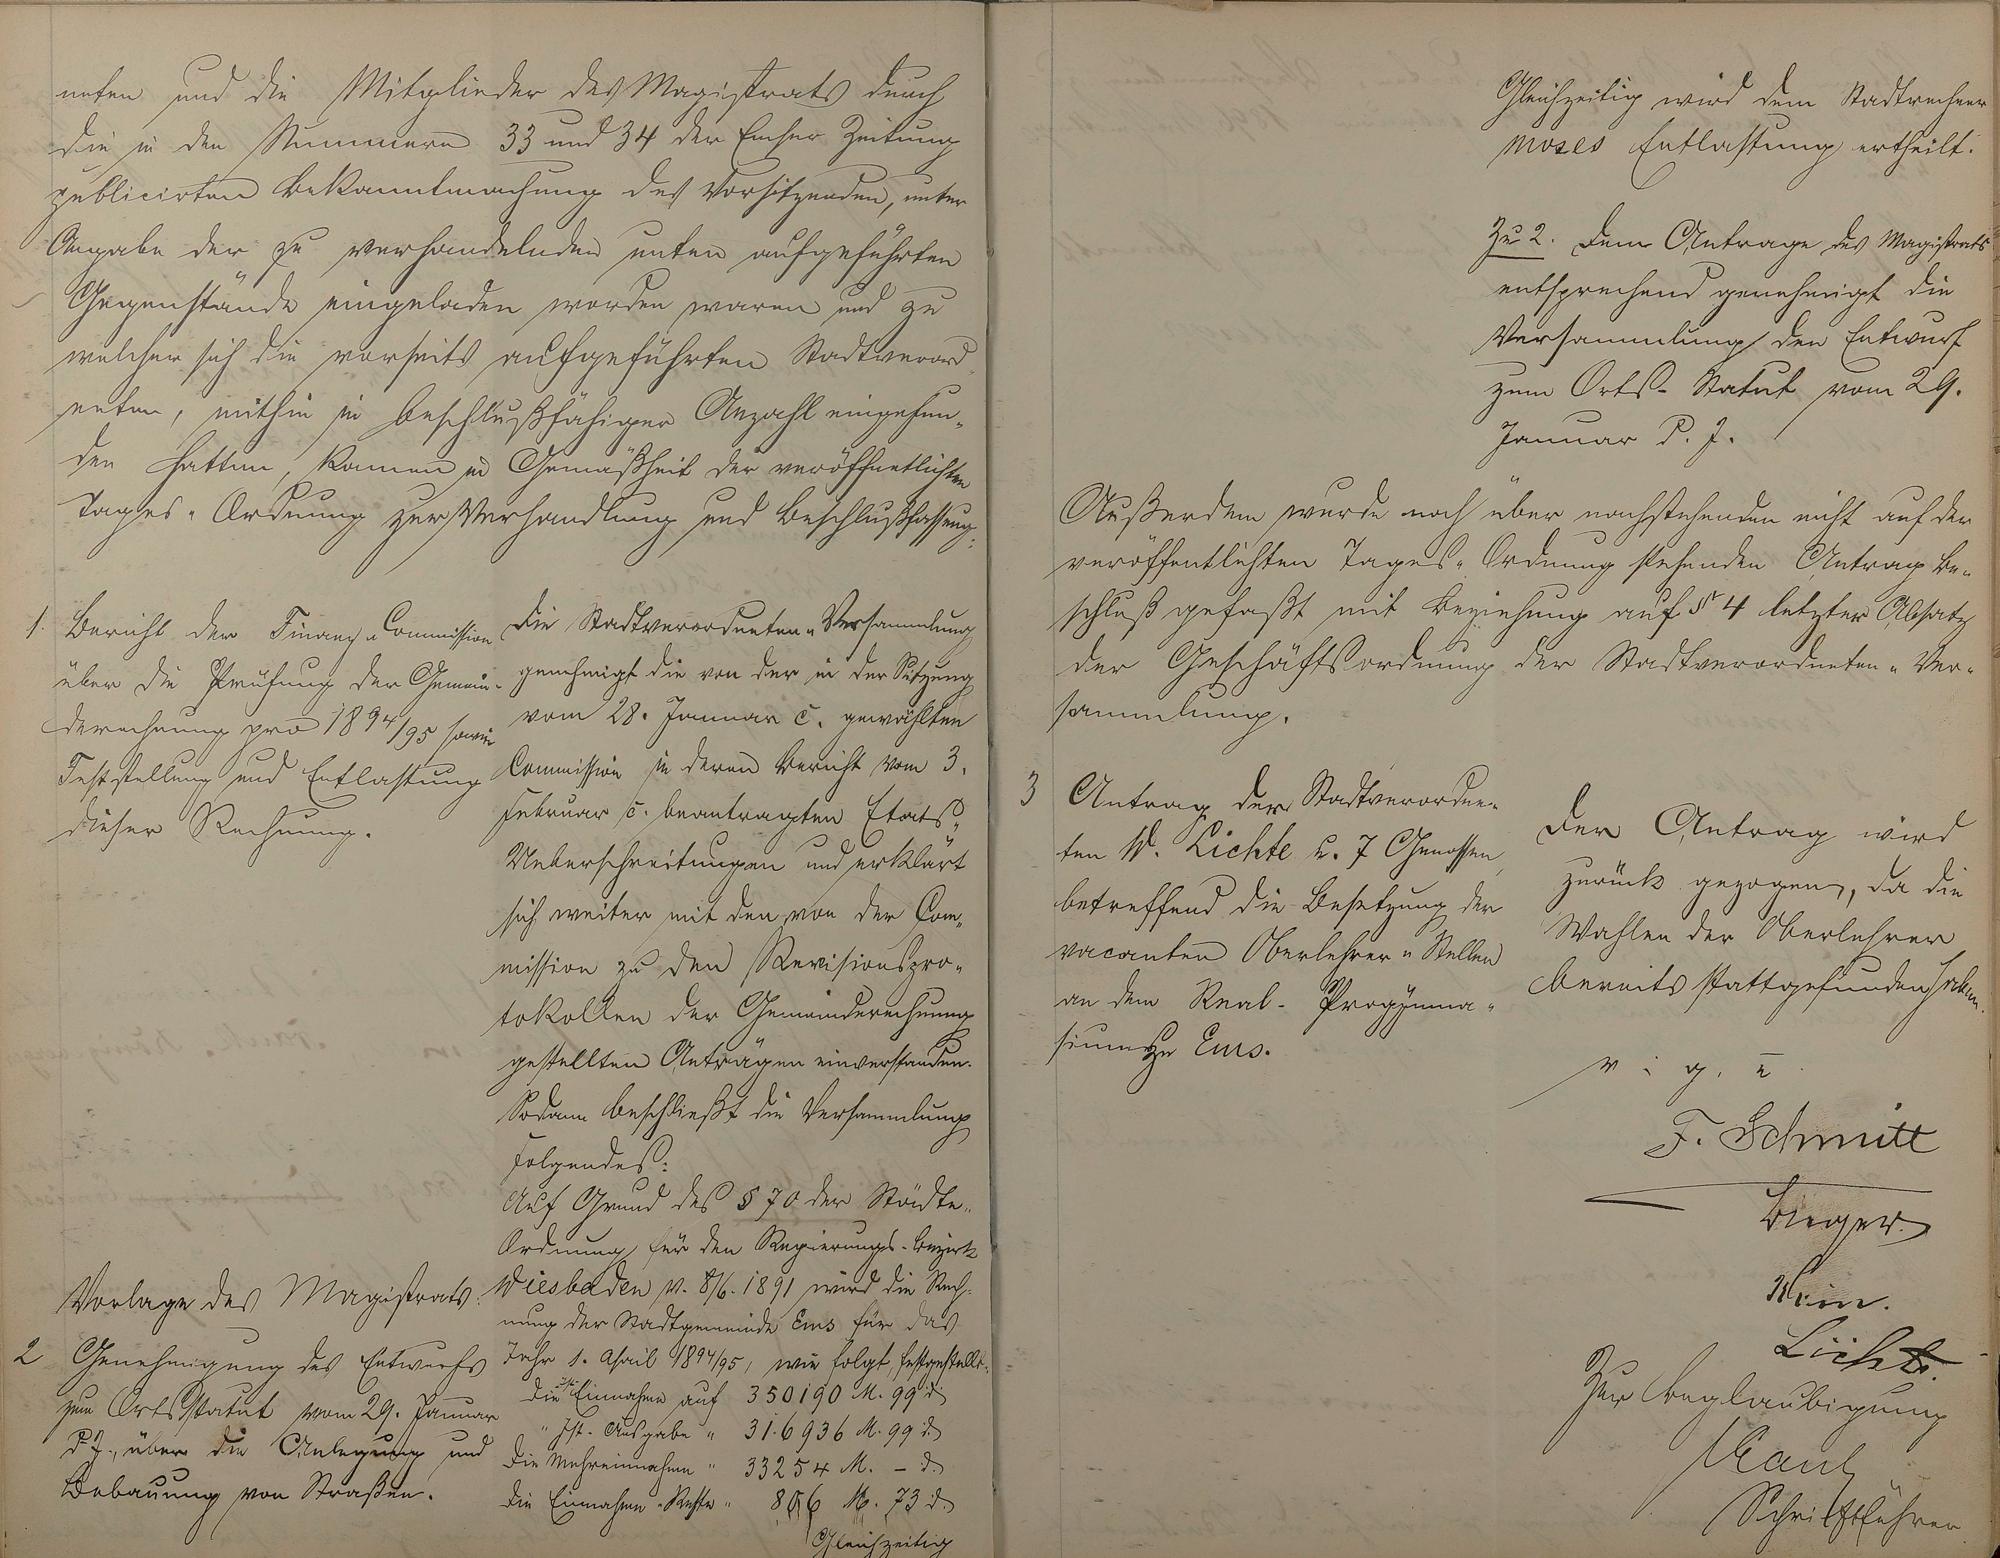 neten und die Mitglieder des Magistrats durch
die in den Nummern 33 und 34 der Emser Zeitung
publicirten Bekanntmachung des Vorsitzenden, unter
Angabe der zu verhandelnden unten aufgeführten
Gegenstände eingeladen worden waren und zu
welcher sich die vorseits aufgeführten Stadtverord
neten, mithin in beschlußfähiger Anzahl eingefun-
den hatten, kamen in Gemäßheit der veröffentlichten
Tages-Ordnung zur Verhandlung und Beschlußfassung:
1. Bericht der Finanz-Commission
über die Prüfung der Gemein-
derechnung pro 1894/95 sowie
Feststellung und Entlastung
dieser Rechnung.
Vorlage des Magistrats:
2 Genehmigung des Entwurfs
zum Ortsstatut vom 29. Januar
d. J., über die Anlegung und
Bebauung von Straßen.
Die Stadtverordneten-Versammlung
genehmigt die von der in der Sitzung
vom 28. Januar c. gewählten
Commission in deren Bericht vom 3.
Februar c. beantragten Etats-
Ueberschreitungen und erklärt
sich weiter mit den von der Com-
mission zu den Revisionspro-
tokollen der Gemeinderechnung
gestellten Anträgen einverstanden.
Sodann beschließt die Versammlung
Folgendes:
Auf Grund des § 70 der Städte-
Ordnung für den Regierungs-Bezirk
Wiesbaden v. 8/6. 1891 wird die Rech-
nung der Stadtgemeinde Ems für das
Jahr 1. April 1894/95, wie folgt, festgestellt:
Die Ist Einnahme auf 350190 M. 99 d.
" Ist-Ausgabe " 316936 M. 99 d.
Die Mehreinnahme " 33254 M. – d.
Die Einnahme-Reste " M. 73 d.
Gleichzeitig
Gleichzeitig wird dem Stadtrechner
Moses Entlastung ertheilt.
Zu 2. Dem Antrage des Magistrats
entsprechend genehmigt die
Versammlung den Entwurf
zum Orts-Statut vom 29.
Januar d. J.
Außerdem wurde noch über nachstehenden nicht auf der
veröffentlichten Tages-Ordnung stehenden Antrag Be-
schluß gefaßt mit Beziehung auf § 4 letzter Absatz
der Geschäftsordnung der Stadtverordneten-Ver-
sammlung.
3 Antrag der Stadtverordne-
ten W. Lichte u. 7 Genossen,
betreffend die Besetzung der
vacanten Oberlehrer-Stellen
an dem Real-Progymna-
sium zu Ems.
Der Antrag wird
zurück gezogen, da die
Wahlen der Oberlehrer
bereits stattgefunden haben.
v. g. u.
F. Schmitt
Bieger
Lichte.
Zur Beglaubigung
Schriftführer